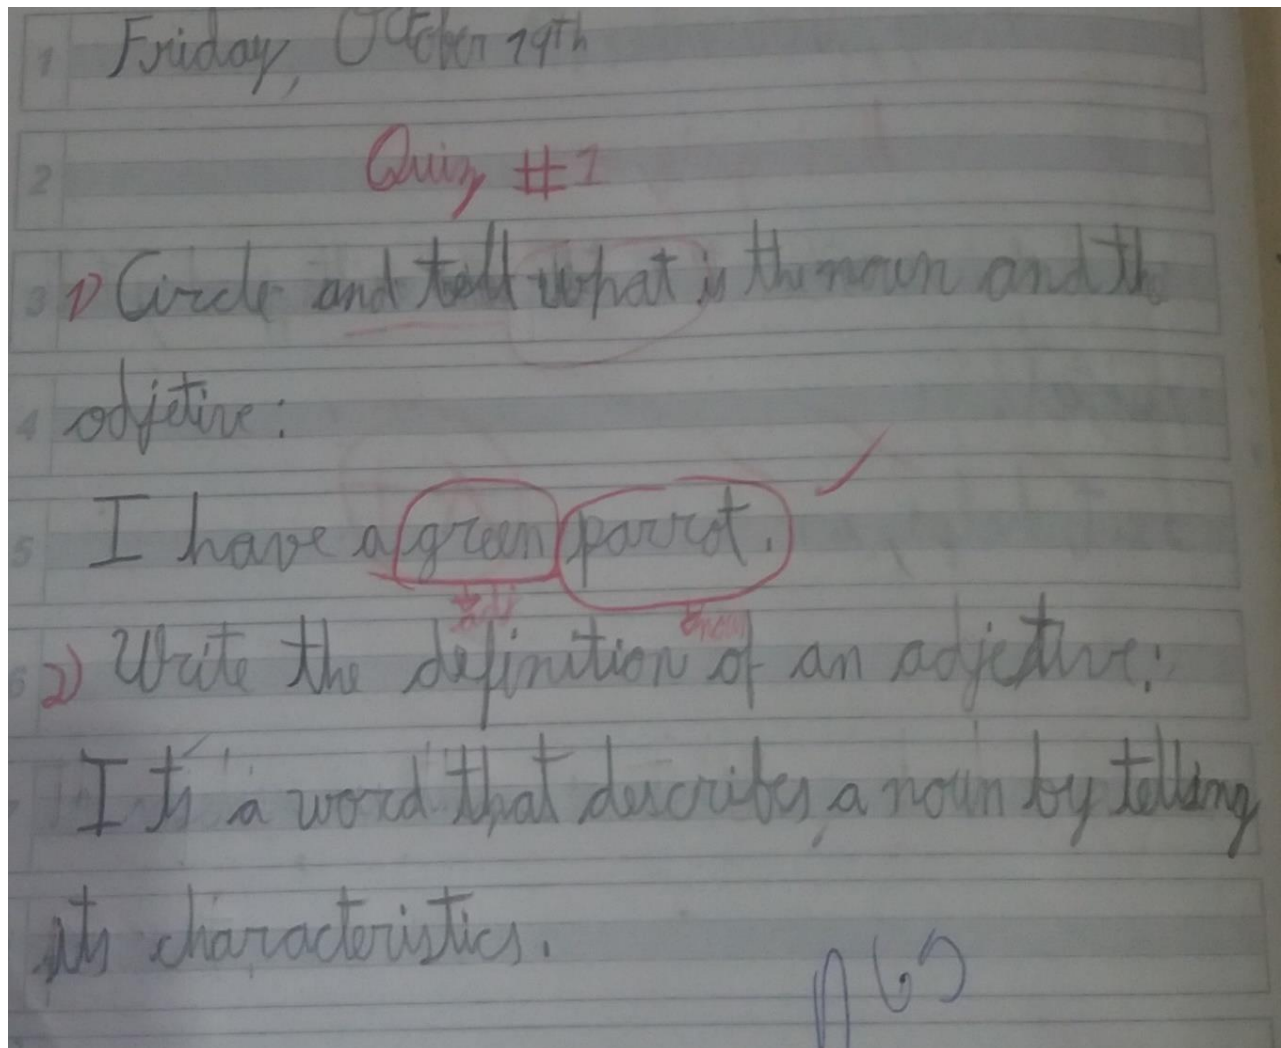 Friday, October 19th
Quiz #1
1) Circle and tell what is the noun and the
odjetive:
I have a green parrot.
adj noun
2) Write the definition of an adjective:
It's a word that describes a noun by telling
its characteristics.